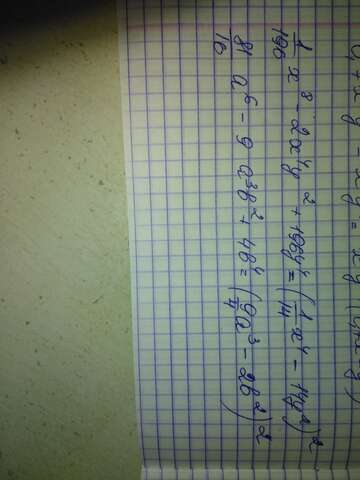 1/196 x⁸ - 2x⁴y² + 196y⁴ = (1/14 x⁴ - 14y²)²
81/16 a⁶ - 9a³b² + 4b⁴ = (9/4 a³ - 2b²)²